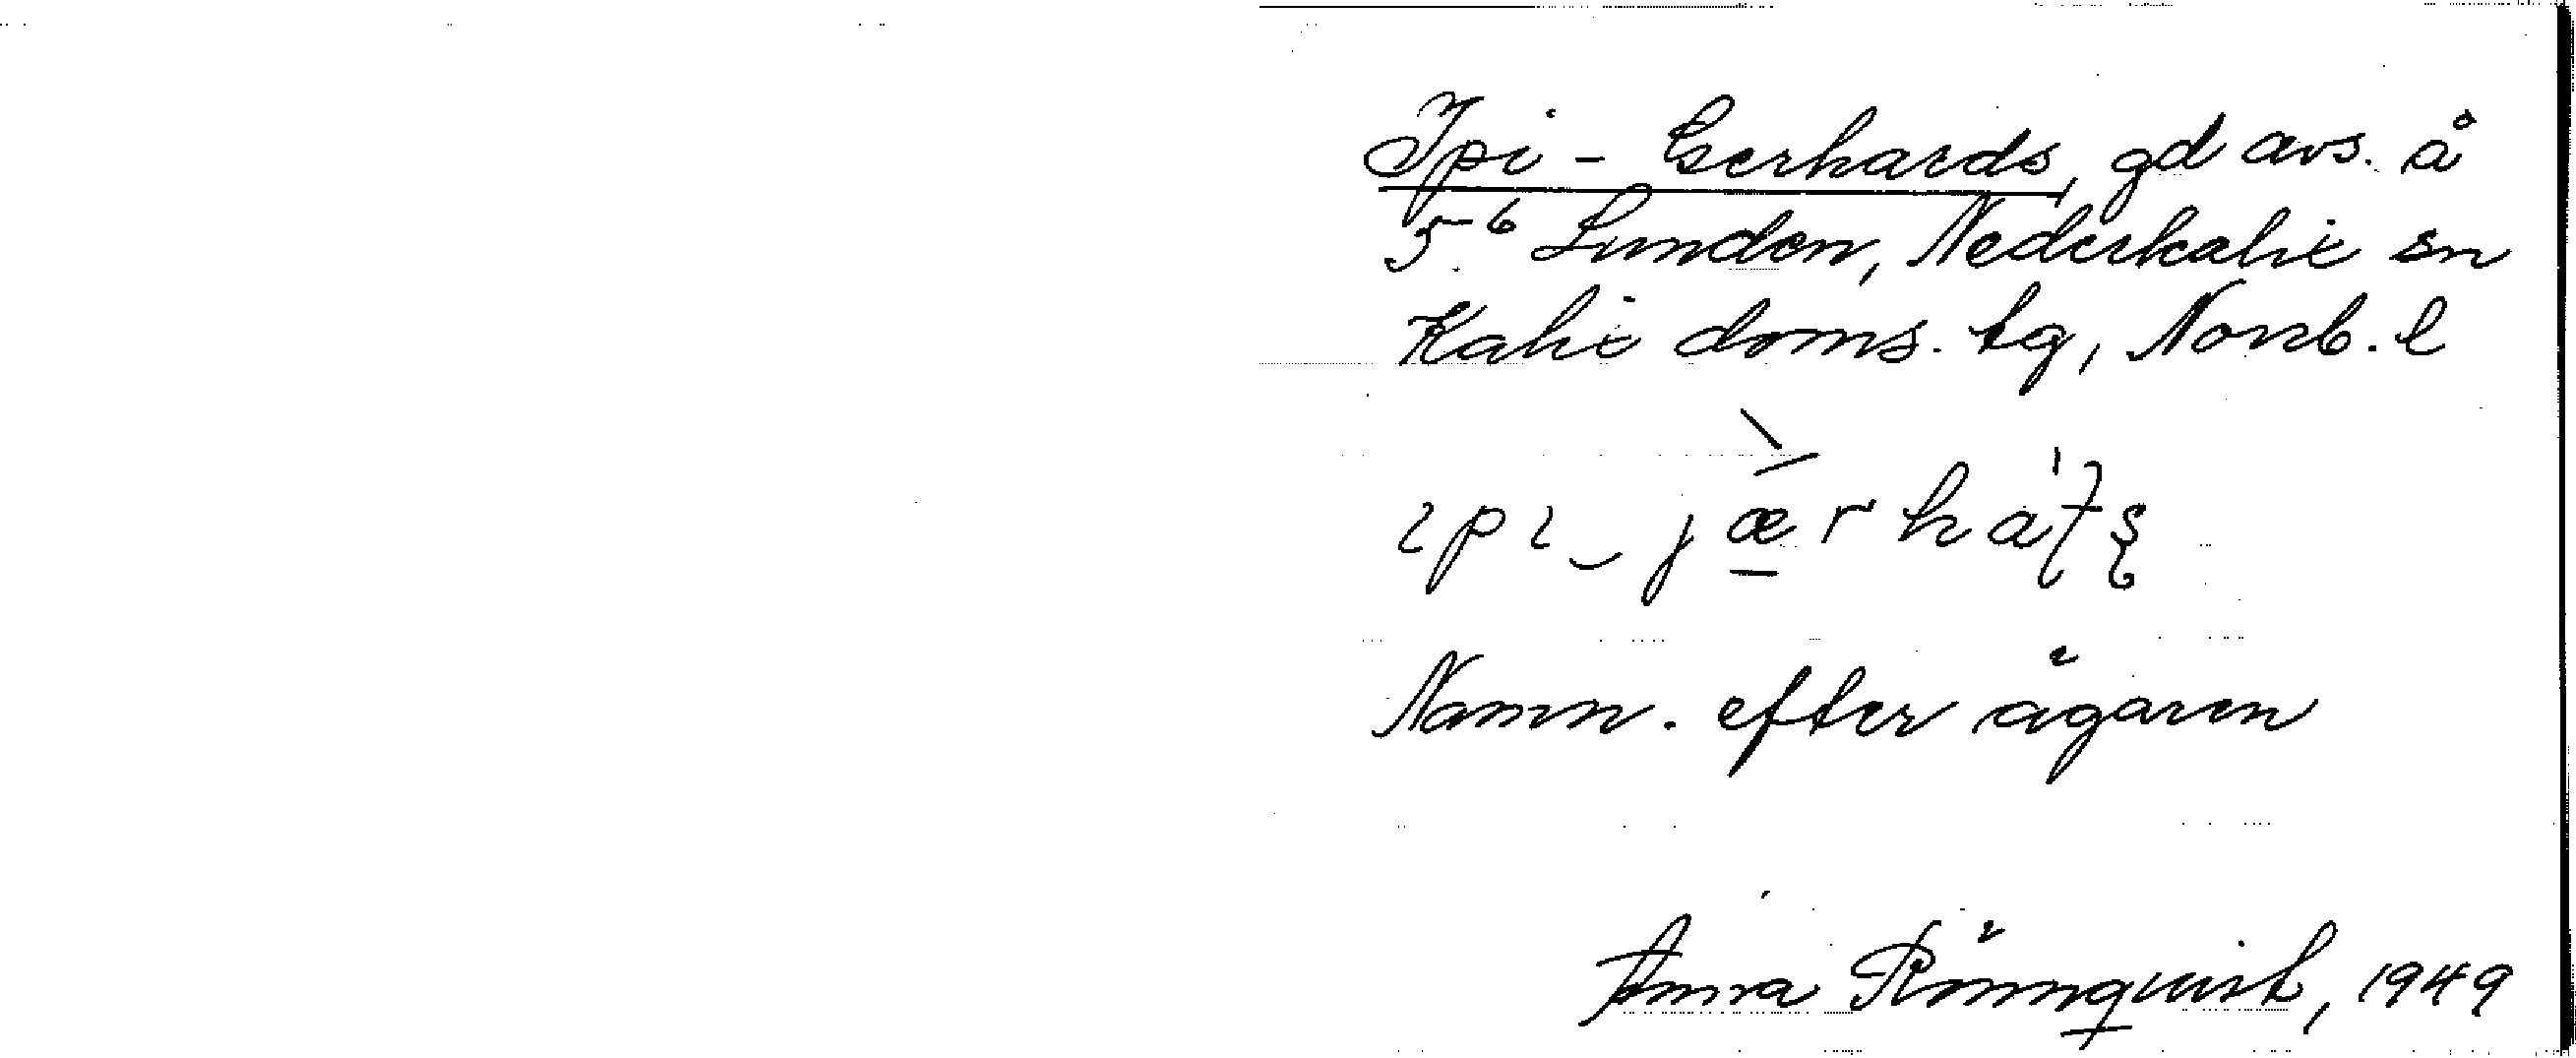 Ipi - Gerhards, gd avs. å
5⁶ Lunden, Nederkalix sn
Kalix doms. tg, Norrb. l
ɩpɩ‿jærhat̠ʂ
Namn. efter ägaren
Anna Rönnqvist, 1949